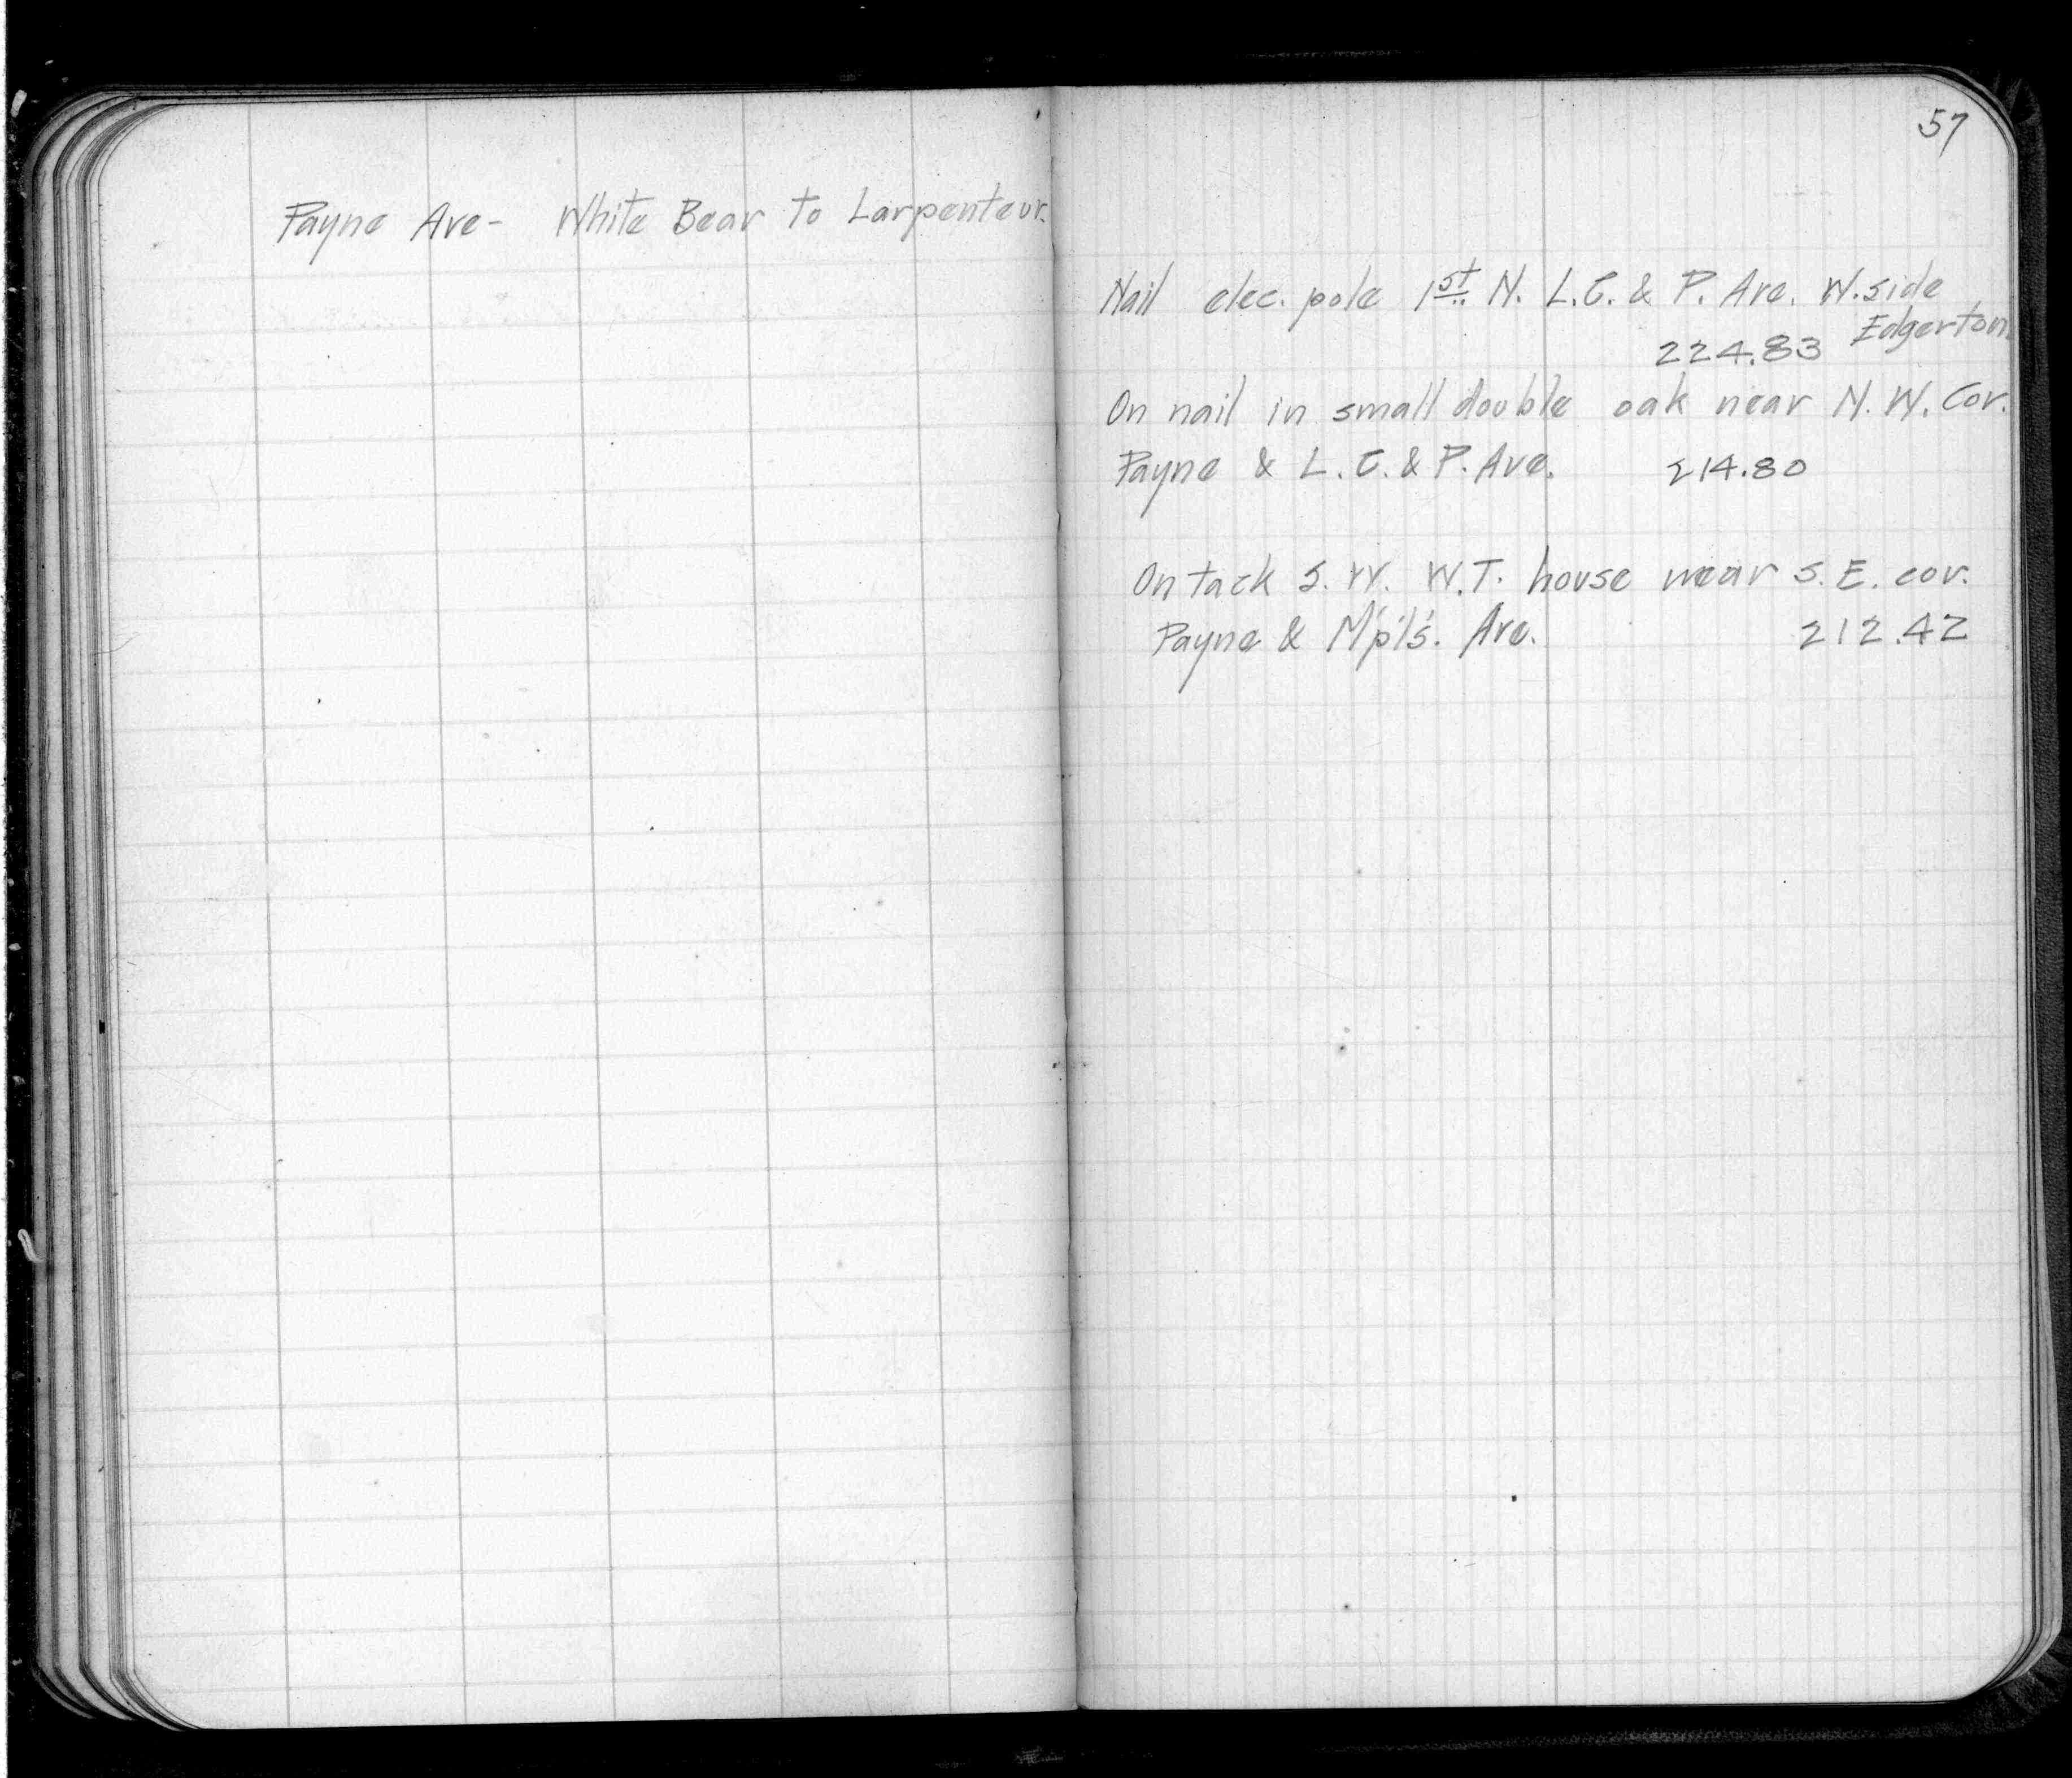 57
Payne Ave- White Bear to Larpenteur.
Nail elec. pole 1st N. L.C. & P. Ave. W. side
224.83 Edgerton.
On nail in small double oak near N. W. Cor.
Payne & L. C. & P. Ave. 214.80
On tack S. W. W.T. house near S. E. cor.
Payne & M'p'l's. Ave. 212.42